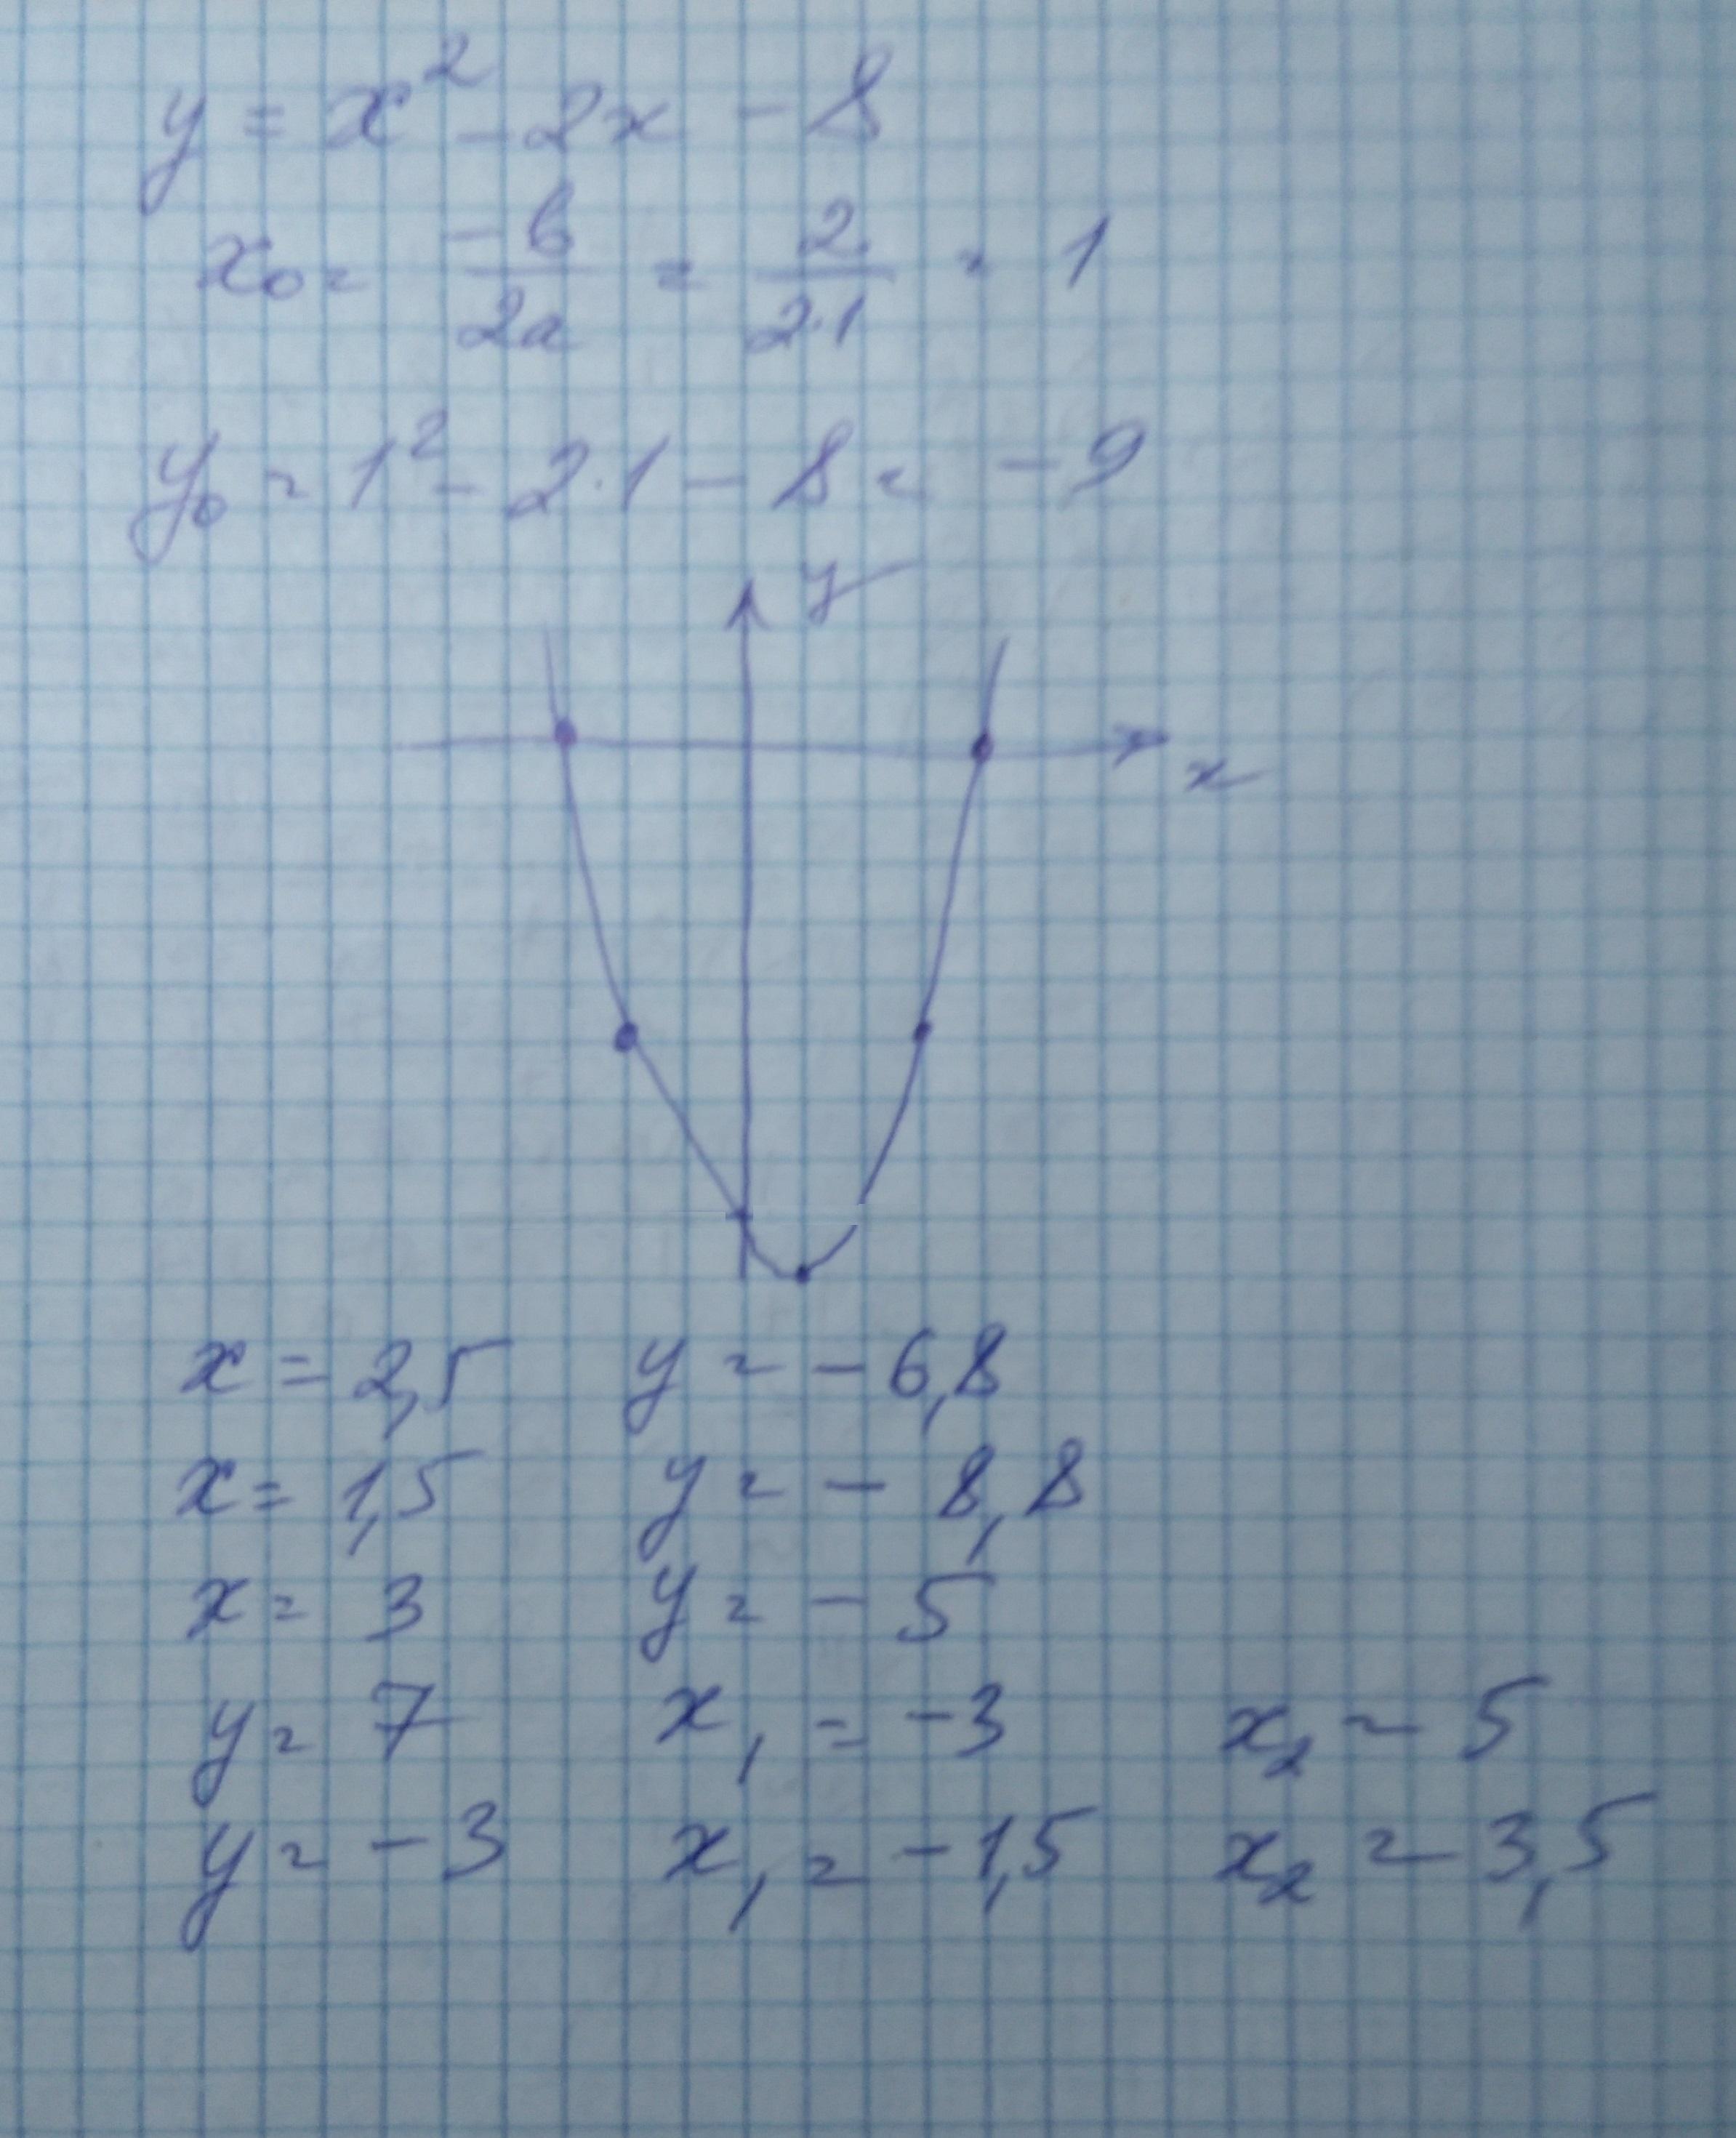 y = x² - 2x - 8
x₀ = -b/2a = 2/2·1 = 1
y₀ = 1² - 2·1 - 8 = -9
y
x
x = 2,5 y = -6,8
x = 1,5 y = -8,8
x = 3 y = -5
y = 7 x₁ = -3 x₂ = 5
y = -3 x₁ = -1,5 x₂ = 3,5